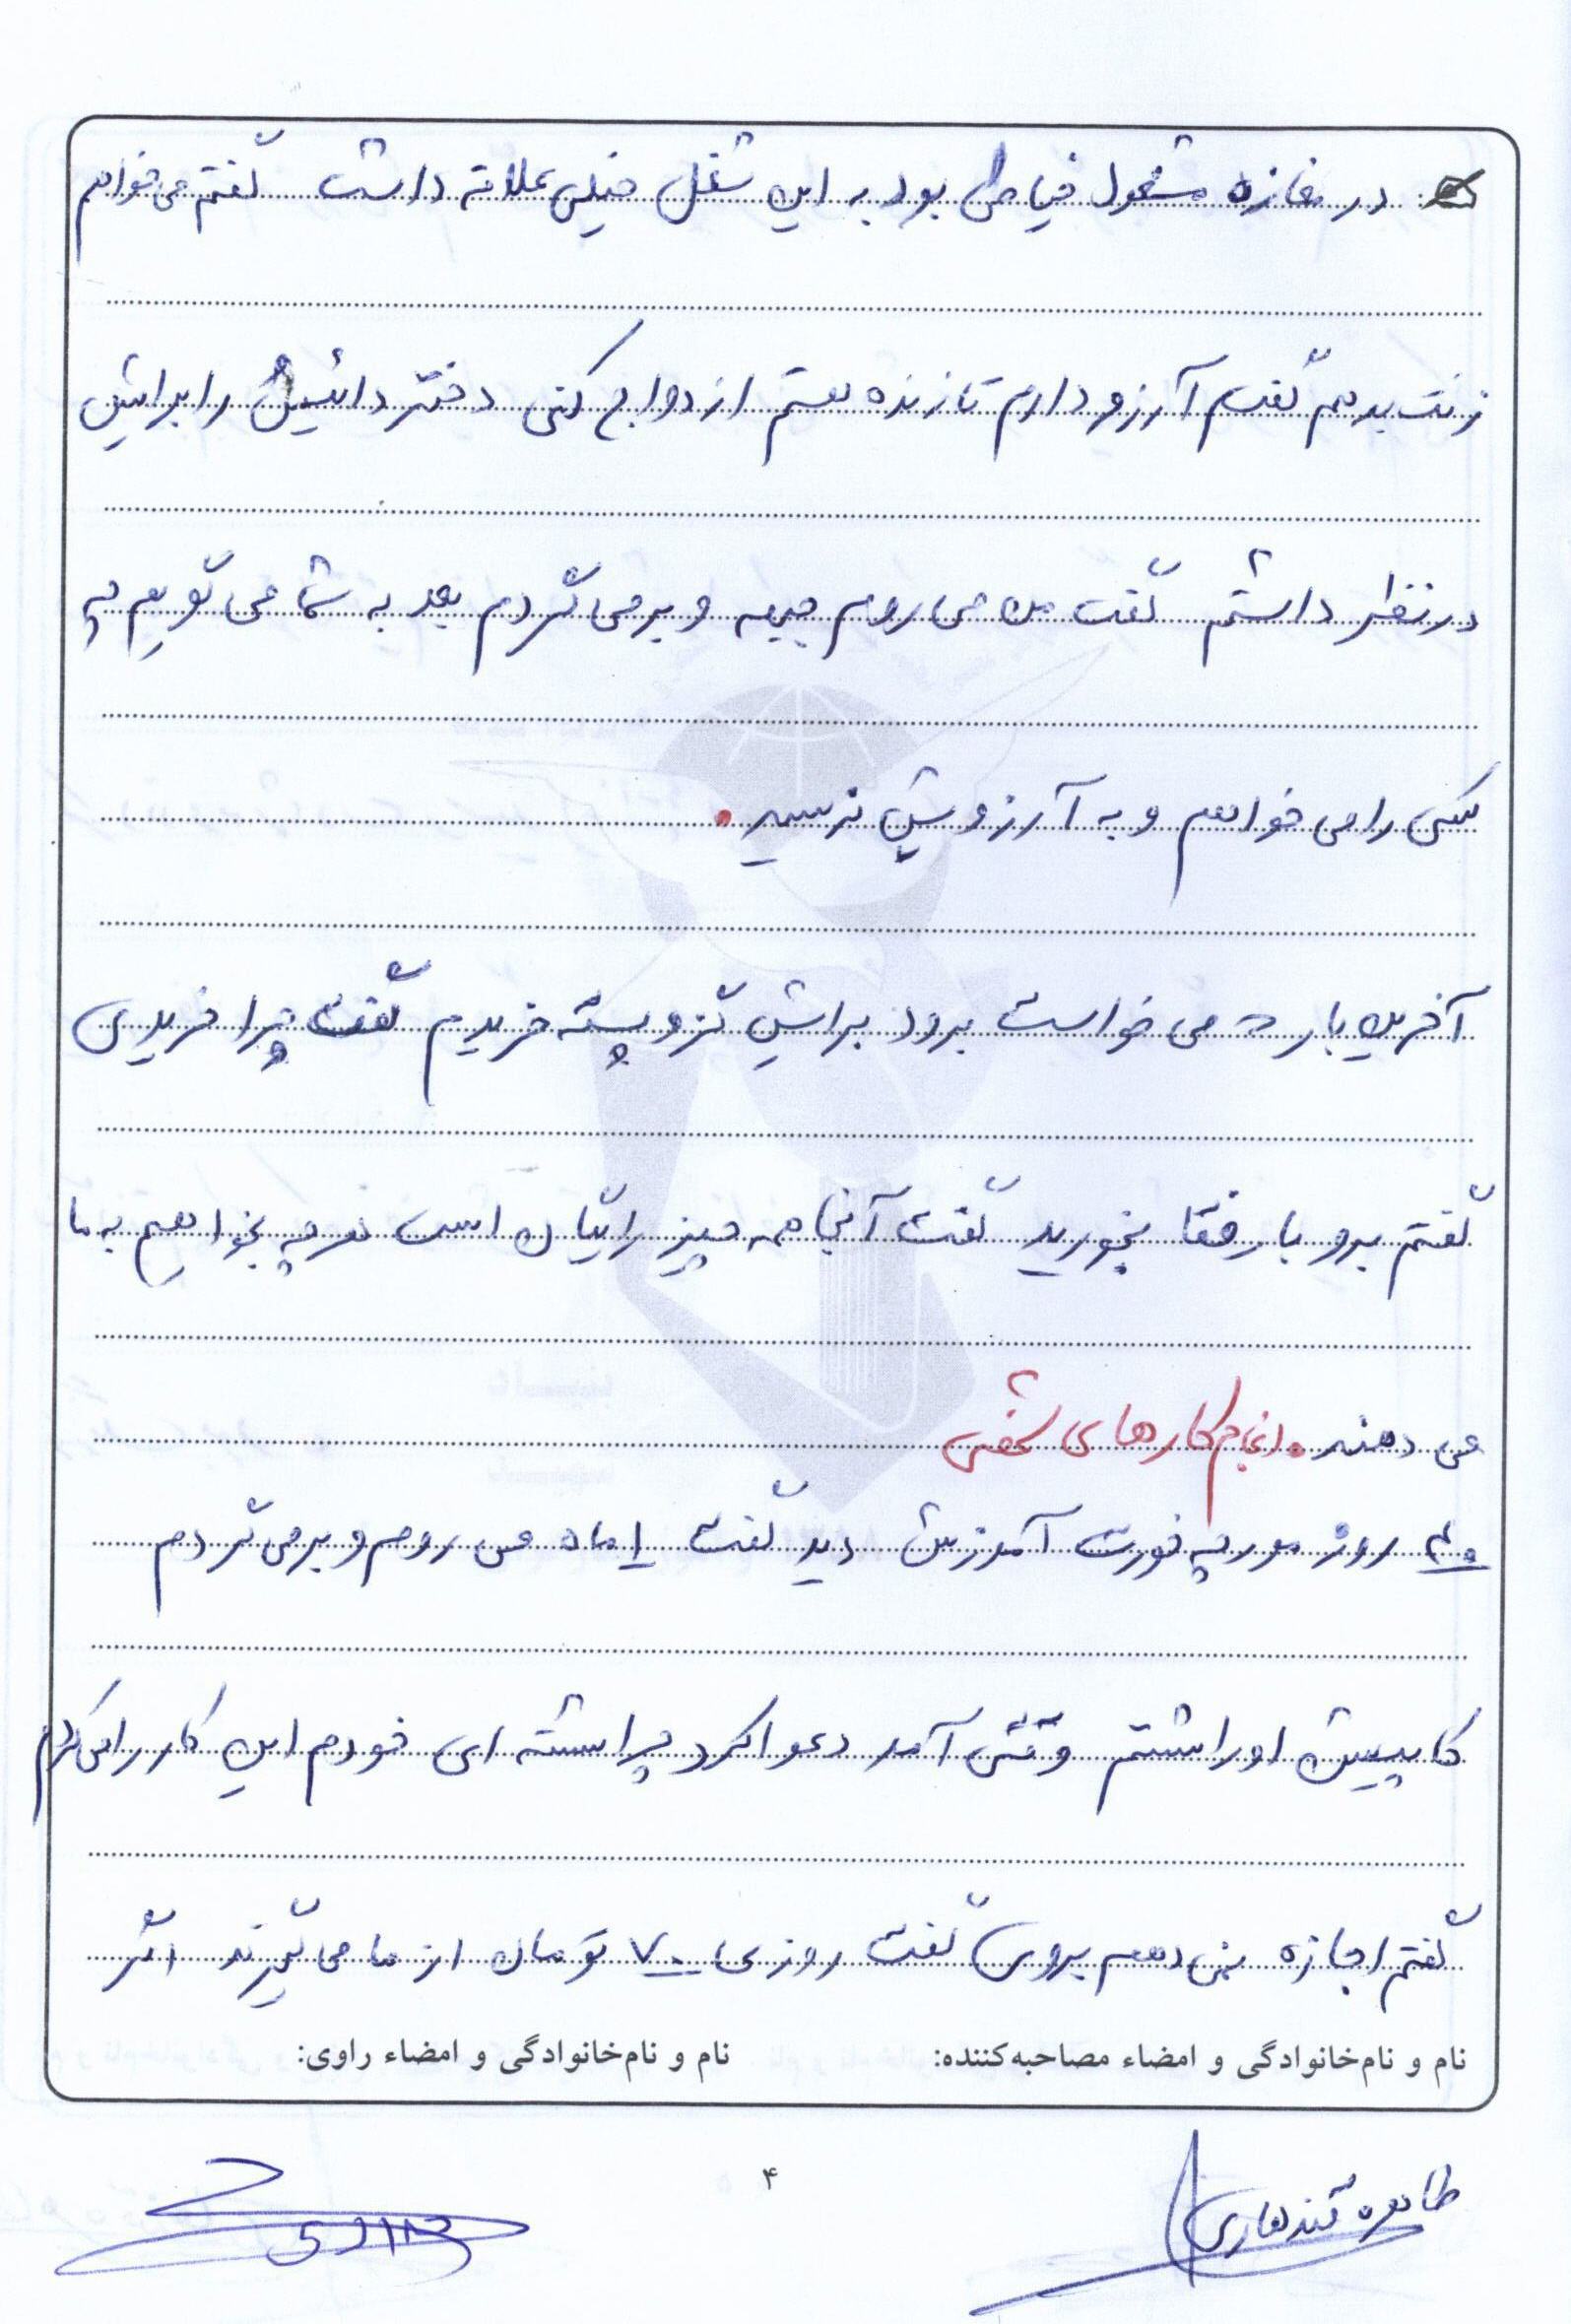 در مغازه مشغول خیاطی بود به این شغل خیلی علاقه داشت گفتم می خواهم
زنت بدهم گفتم آرزو دارم تا زنده هستم ازدواج کنی دختر دائیش را برایش
در نظر داشتم گفت من می روم جبهه و برمی گردم بعد به شما می گویم چه
کسی را می خواهم و به آرزویش نرسید.
آخرین بار که می خواست برود برایش گز و پسته خریدم گفت چرا خریدی
گفتم برو با رفقا بخورید گفت آنجا همه چیز رایگان است هرچه بخواهیم به ما
می دهند. انجام کارهای شخصی
۴۰ روز مورچه خورت آموزش دید گفت ۱ ماه می روم و برمی گردم
کاپیشن او را شستم وقتی آمد دعوا کرد چرا شسته ای خودم این کار را می کردم
گفتم اجازه نمی دهم بروی گفت روزی ۷۰ تومان از ما می گیرند اگر
نام و نام‌خانوادگی و امضاء مصاحبه‌کننده: نام و نام‌خانوادگی و امضاء راوی:
طاهره قندهاری
۴